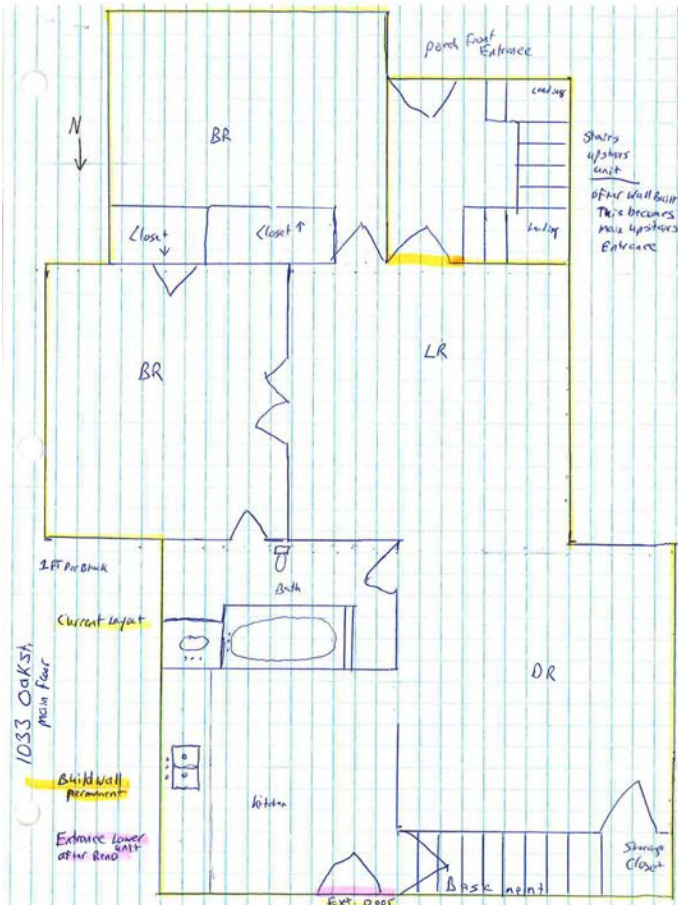 Porch Front
Entrance
Landing
N
BR
Stairs
upstairs
unit
after wall Built
This becomes
main upstairs
Entrance
Closet
Closet
Landing
LR
BR
1 FT Per Block
Bath
Current Layout
1033 Oak St.
main floor
DR
Build wall
permanent
Kitchen
Entrance Lower
unit
after Reno
Storage
Closet
Basement
Ext. Door